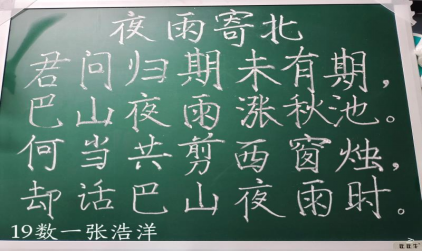 夜雨寄北
君问归期未有期，
巴山夜雨涨秋池。
何当共剪西窗烛，
却话巴山夜雨时。
19数一张浩洋